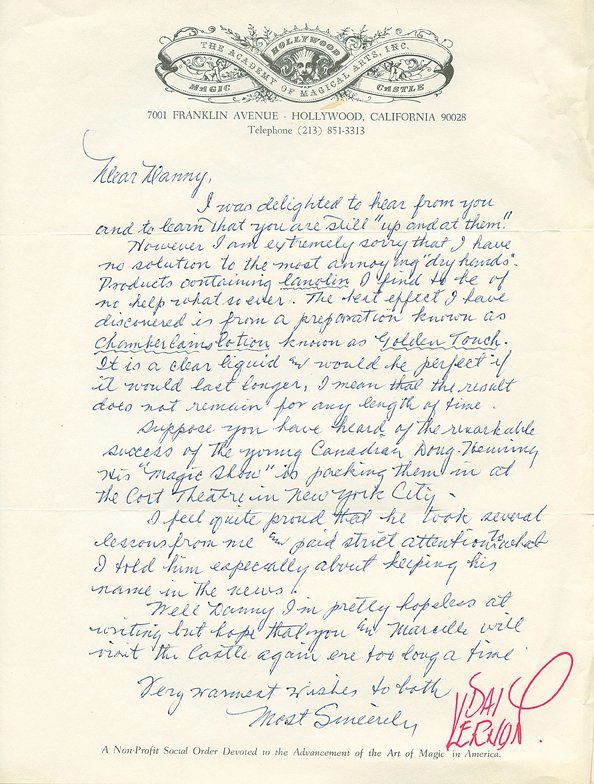 HOLLYWOOD
THE ACADEMY OF MAGICAL ARTS, INC.
MAGIC CASTLE
7001 FRANKLIN AVENUE · HOLLYWOOD, CALIFORNIA 90028
Telephone (213) 851-3313
Dear Danny,
I was delighted to hear from you
and to learn that you are still "up and at them."
However I am extremely sorry that I have
no solution to the most annoying "dry hands".
Products containing lanolin I find to be of
no help whatsoever. The best effect I have
discovered is from a preparation known as
Chamberlains lotion known as Golden Touch.
It is a clear liquid & would be perfect if
it would last longer, I mean that the result
does not remain for any length of time.
Suppose you have heard of the remarkable
success of the young Canadian Doug. Henning
His "Magic Show" is packing them in at
the Cort Theatre in New York City -
I feel quite proud that he took several
lessons from me & paid strict attention to what
I told him especially about keeping his
name in the news.
Well Danny I'm pretty hopeless at
writing but hope that you & Marcelle will
visit the Castle again ere too long a time
Very warmest wishes to both
Most Sincerely
DAI
VERNON
A Non-Profit Social Order Devoted to the Advancement of the Art of Magic in America.